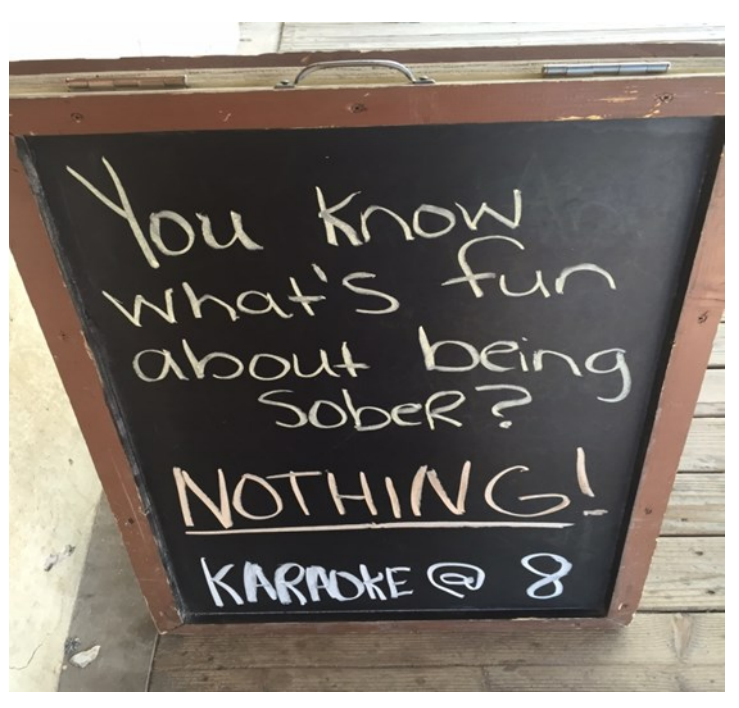 You know
what's fun
about being
sober?
NOTHING!
KARAOKE @ 8